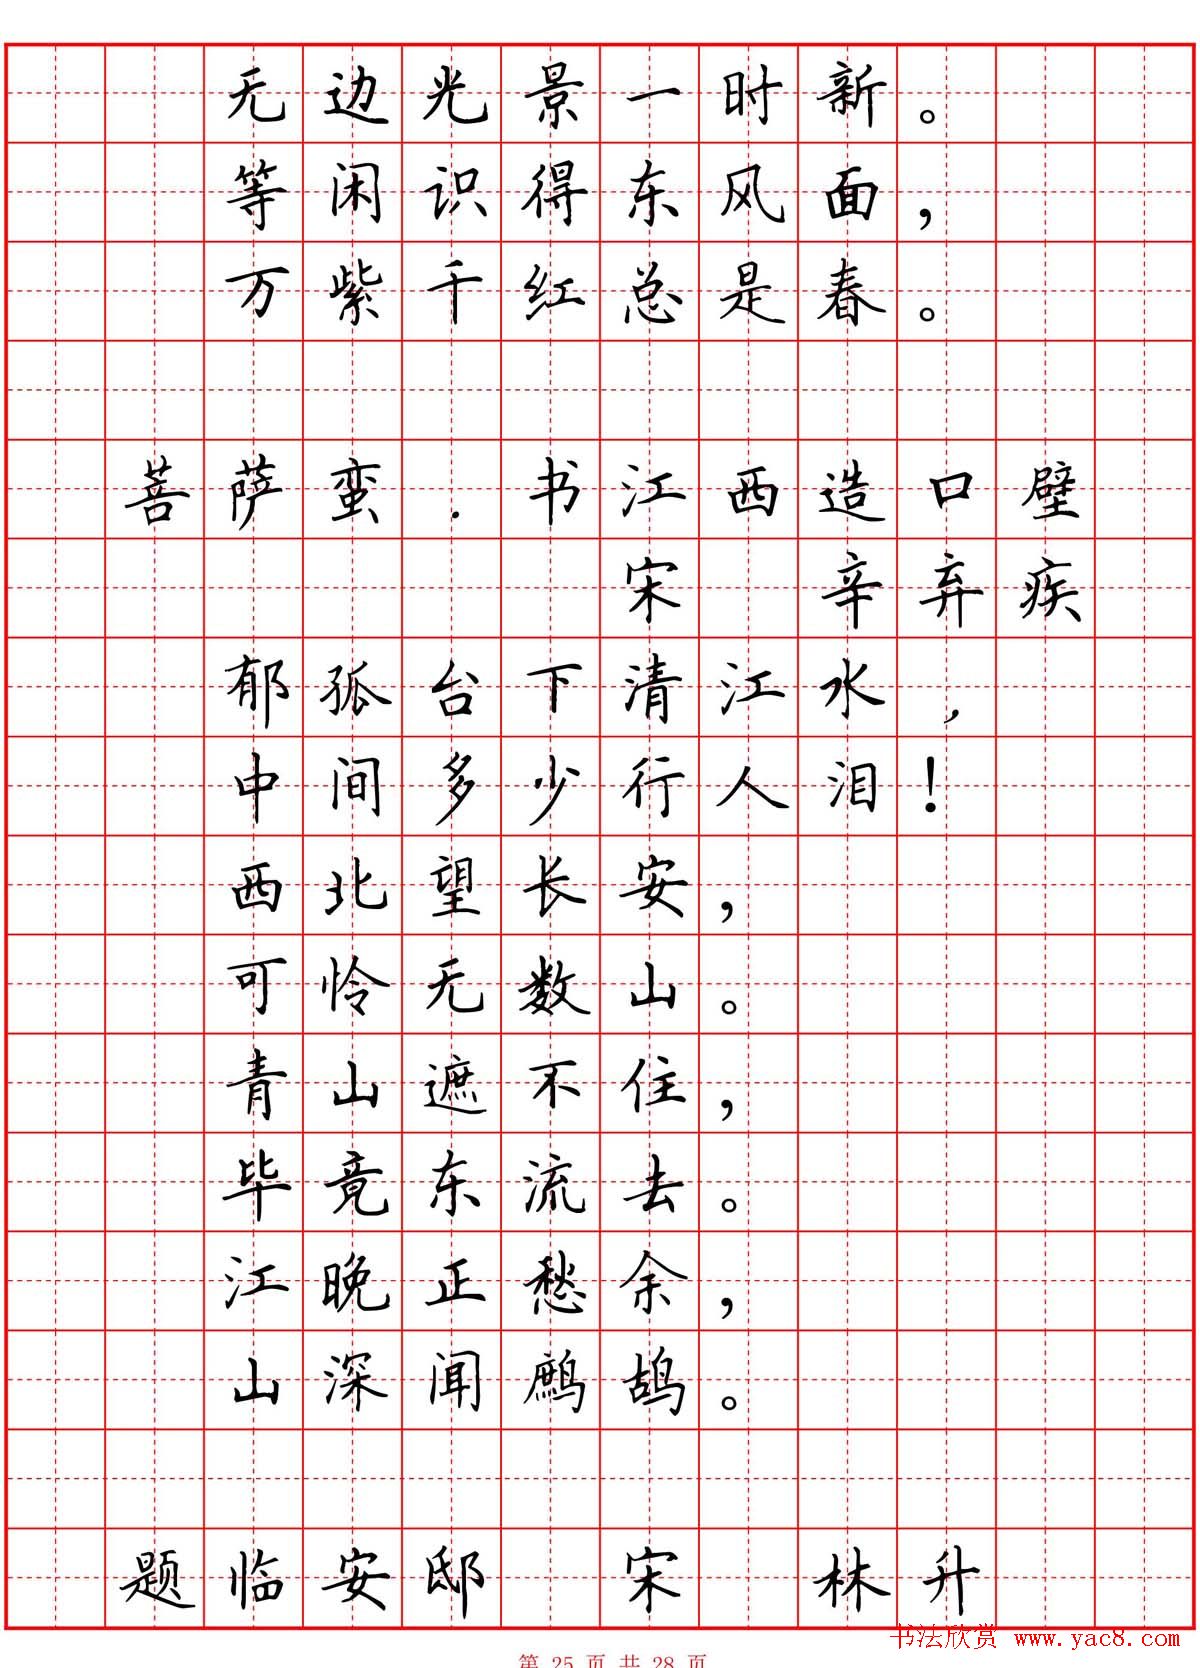 无边光景一时新。
等闲识得东风面，
万紫千红总是春。
菩萨蛮．书江西造口壁
宋 辛弃疾
郁孤台下清江水，
中间多少行人泪！
西北望长安，
可怜无数山。
青山遮不住，
毕竟东流去。
江晚正愁余，
山深闻鹧鸪。
题临安邸 宋 林升
书法欣赏 www.yac8.com
第 25 页 共 28 页